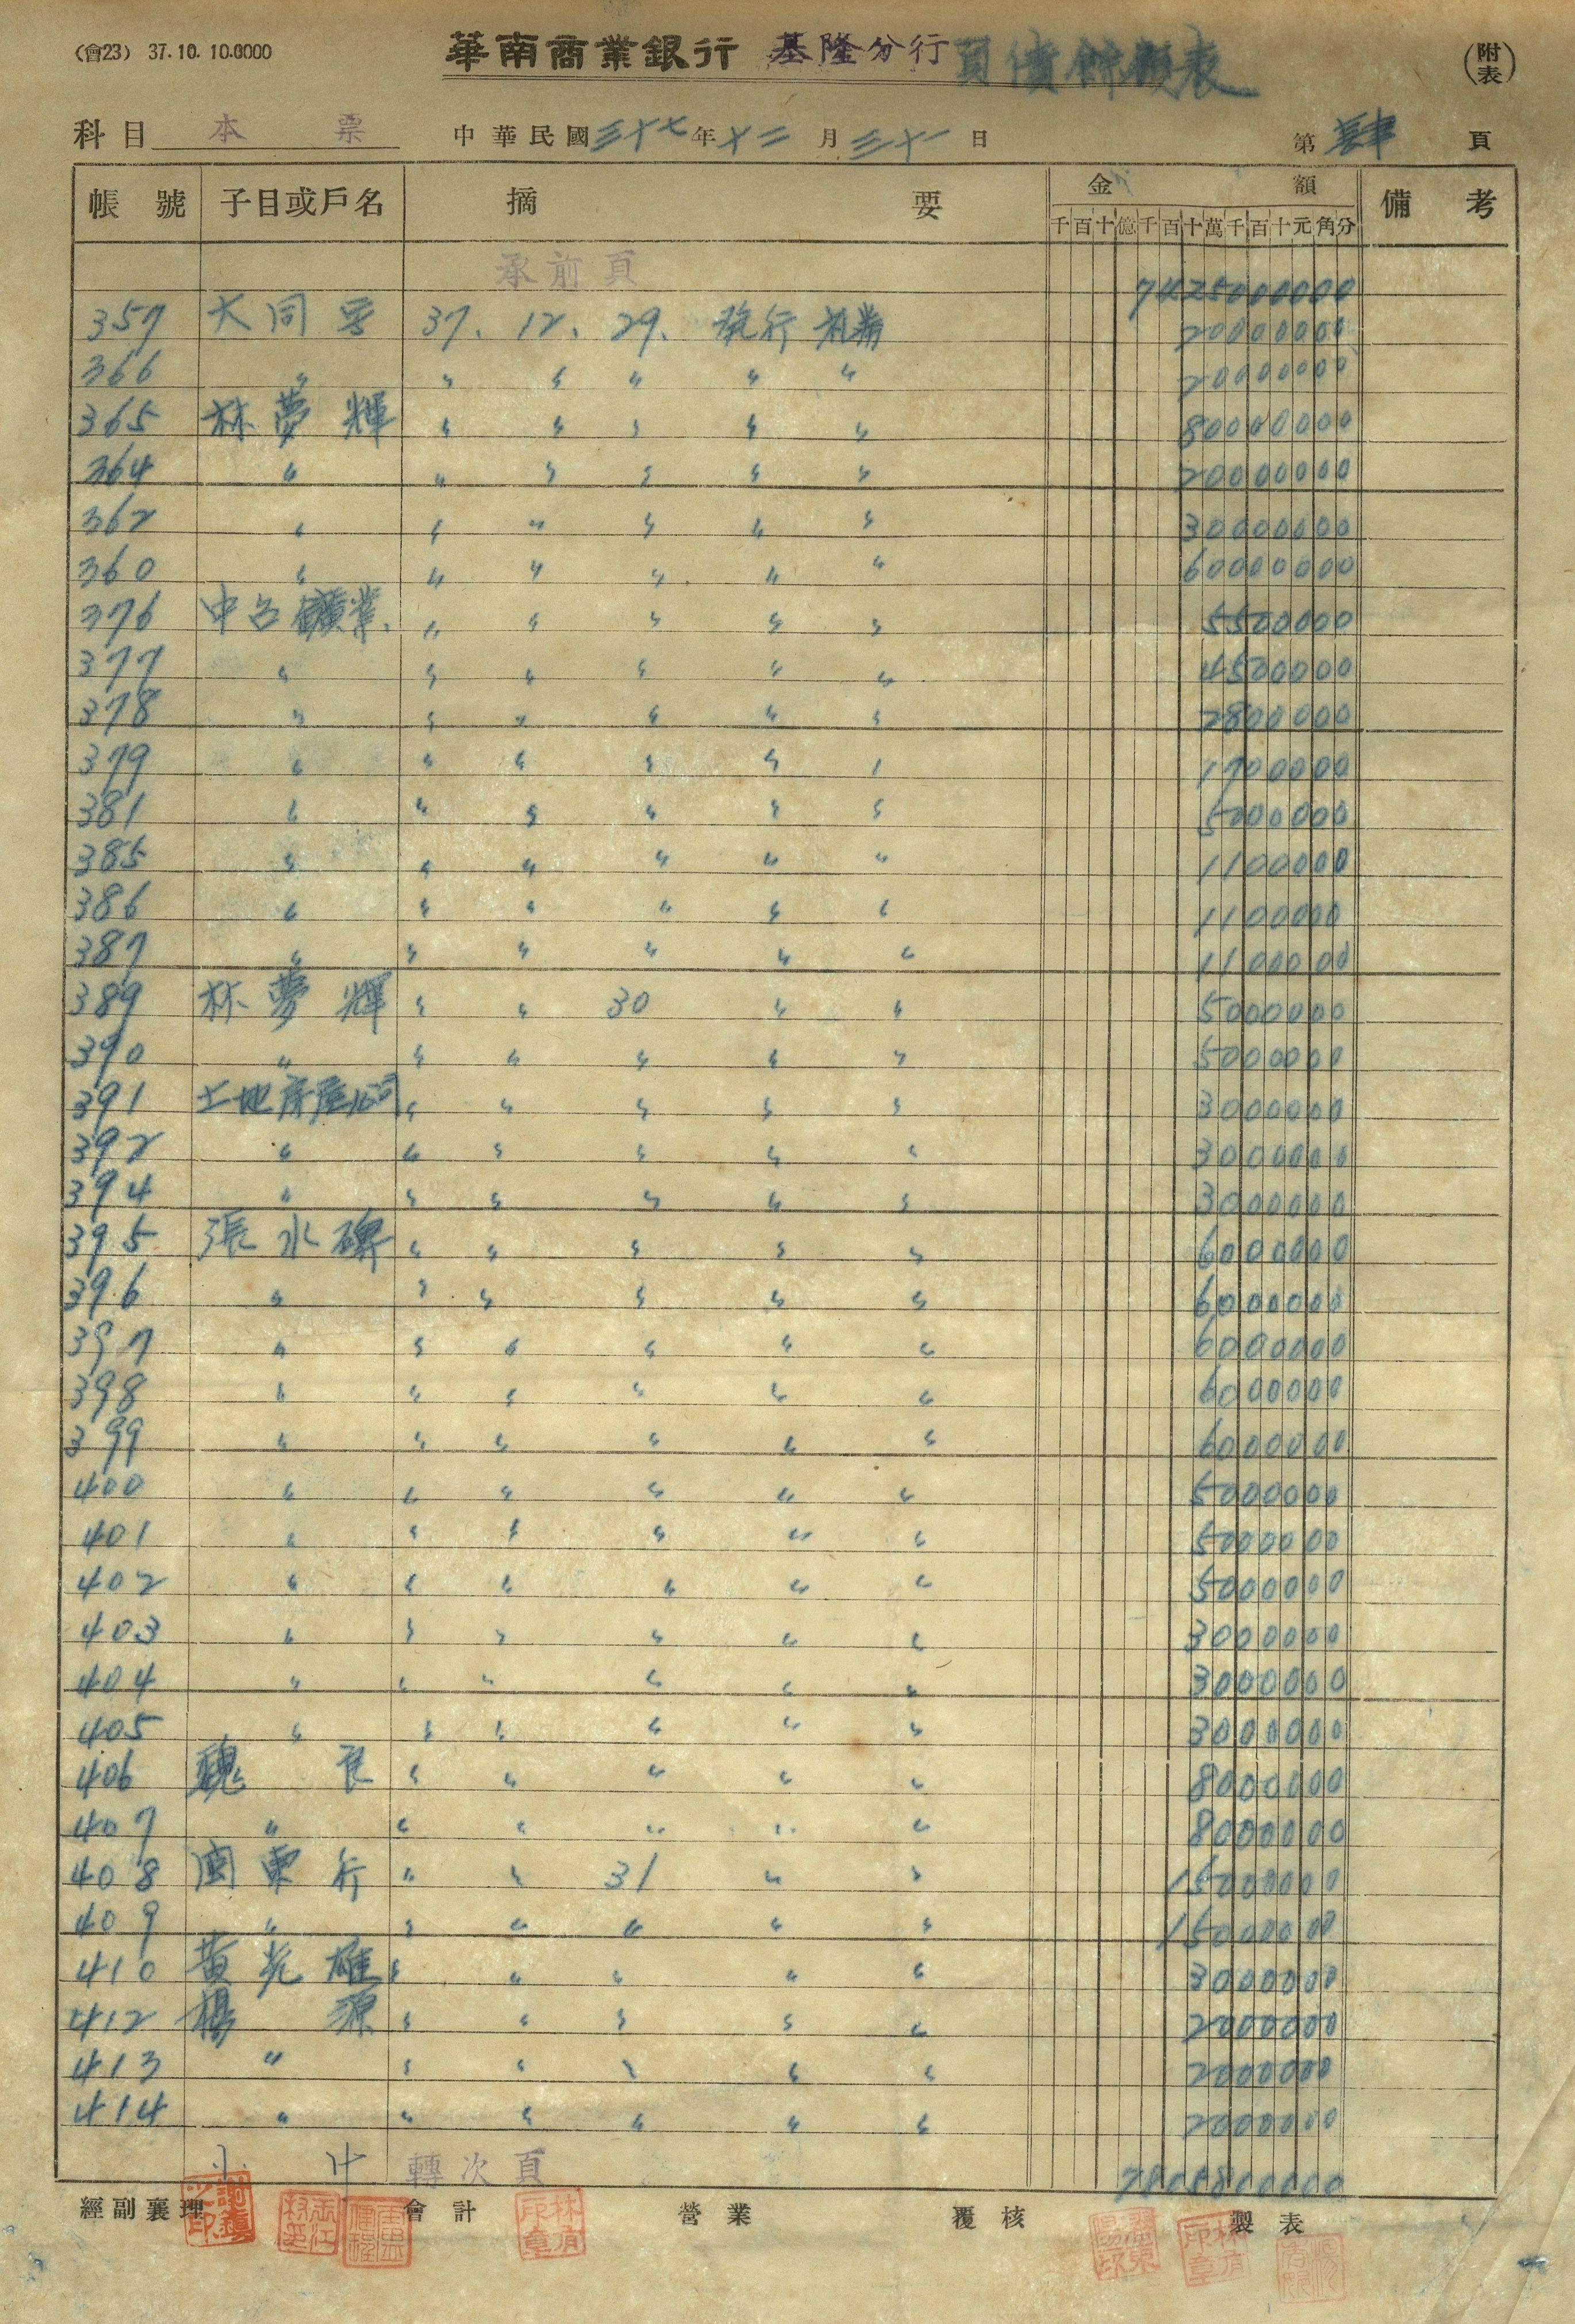 (會23) 37.10.10.0000
華南商業銀行 基隆分行 負債餘額表
(附表)
科目 本票 中華民國三十七年十二月三十一日 第肆頁
帳號 子目或戶名 摘要 金額 備考
千百十億千百十萬千百十元角分
承前頁 7425000000
357 大同 37. 12. 29. 發行 20000000
366 〃 〃 〃 〃 〃 〃 20000000
365 林夢輝 〃 〃 〃 〃 〃 80000000
364 〃 〃 〃 〃 〃 〃 20000000
362 〃 〃 〃 〃 〃 〃 30000000
360 〃 〃 〃 〃 〃 〃 60000000
376 中台鑛業 〃 〃 〃 〃 〃 5500000
377 〃 〃 〃 〃 〃 〃 4500000
378 〃 〃 〃 〃 〃 〃 2800000
379 〃 〃 〃 〃 〃 〃 1700000
381 〃 〃 〃 〃 〃 〃 5000000
385 〃 〃 〃 〃 〃 〃 1100000
386 〃 〃 〃 〃 〃 〃 1100000
387 〃 〃 〃 〃 〃 〃 1100000
389 林夢輝 〃 〃 30 〃 〃 5000000
390 〃 〃 〃 〃 〃 〃 5000000
391 土地房屋公司 〃 〃 〃 〃 〃 3000000
392 〃 〃 〃 〃 〃 〃 3000000
394 〃 〃 〃 〃 〃 〃 3000000
395 張水碑 〃 〃 〃 〃 〃 6000000
396 〃 〃 〃 〃 〃 〃 6000000
397 〃 〃 〃 〃 〃 〃 6000000
398 〃 〃 〃 〃 〃 〃 6000000
399 〃 〃 〃 〃 〃 〃 6000000
400 〃 〃 〃 〃 〃 〃 5000000
401 〃 〃 〃 〃 〃 〃 5000000
402 〃 〃 〃 〃 〃 〃 5000000
403 〃 〃 〃 〃 〃 〃 3000000
404 〃 〃 〃 〃 〃 〃 3000000
405 〃 〃 〃 〃 〃 〃 3000000
406 魏良 〃 〃 〃 〃 〃 8000000
407 〃 〃 〃 〃 〃 〃 8000000
408 閩東行 〃 〃 31 〃 〃 15000000
409 〃 〃 〃 〃 〃 〃 15000000
410 黃光雄 〃 〃 〃 〃 〃 3000000
412 楊源 〃 〃 〃 〃 〃 2000000
413 〃 〃 〃 〃 〃 〃 2000000
414 〃 〃 〃 〃 〃 〃 2000000
小計 轉次頁 7805800000
經副襄理 會計 營業 覆核 製表